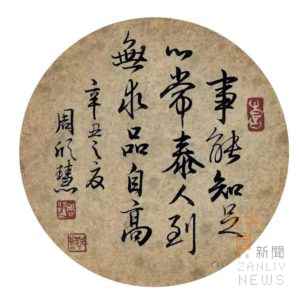 事能知足
心常泰人到
無求品自高
辛丑之夏
周欣慧
新聞
ZANLIV
NEWS